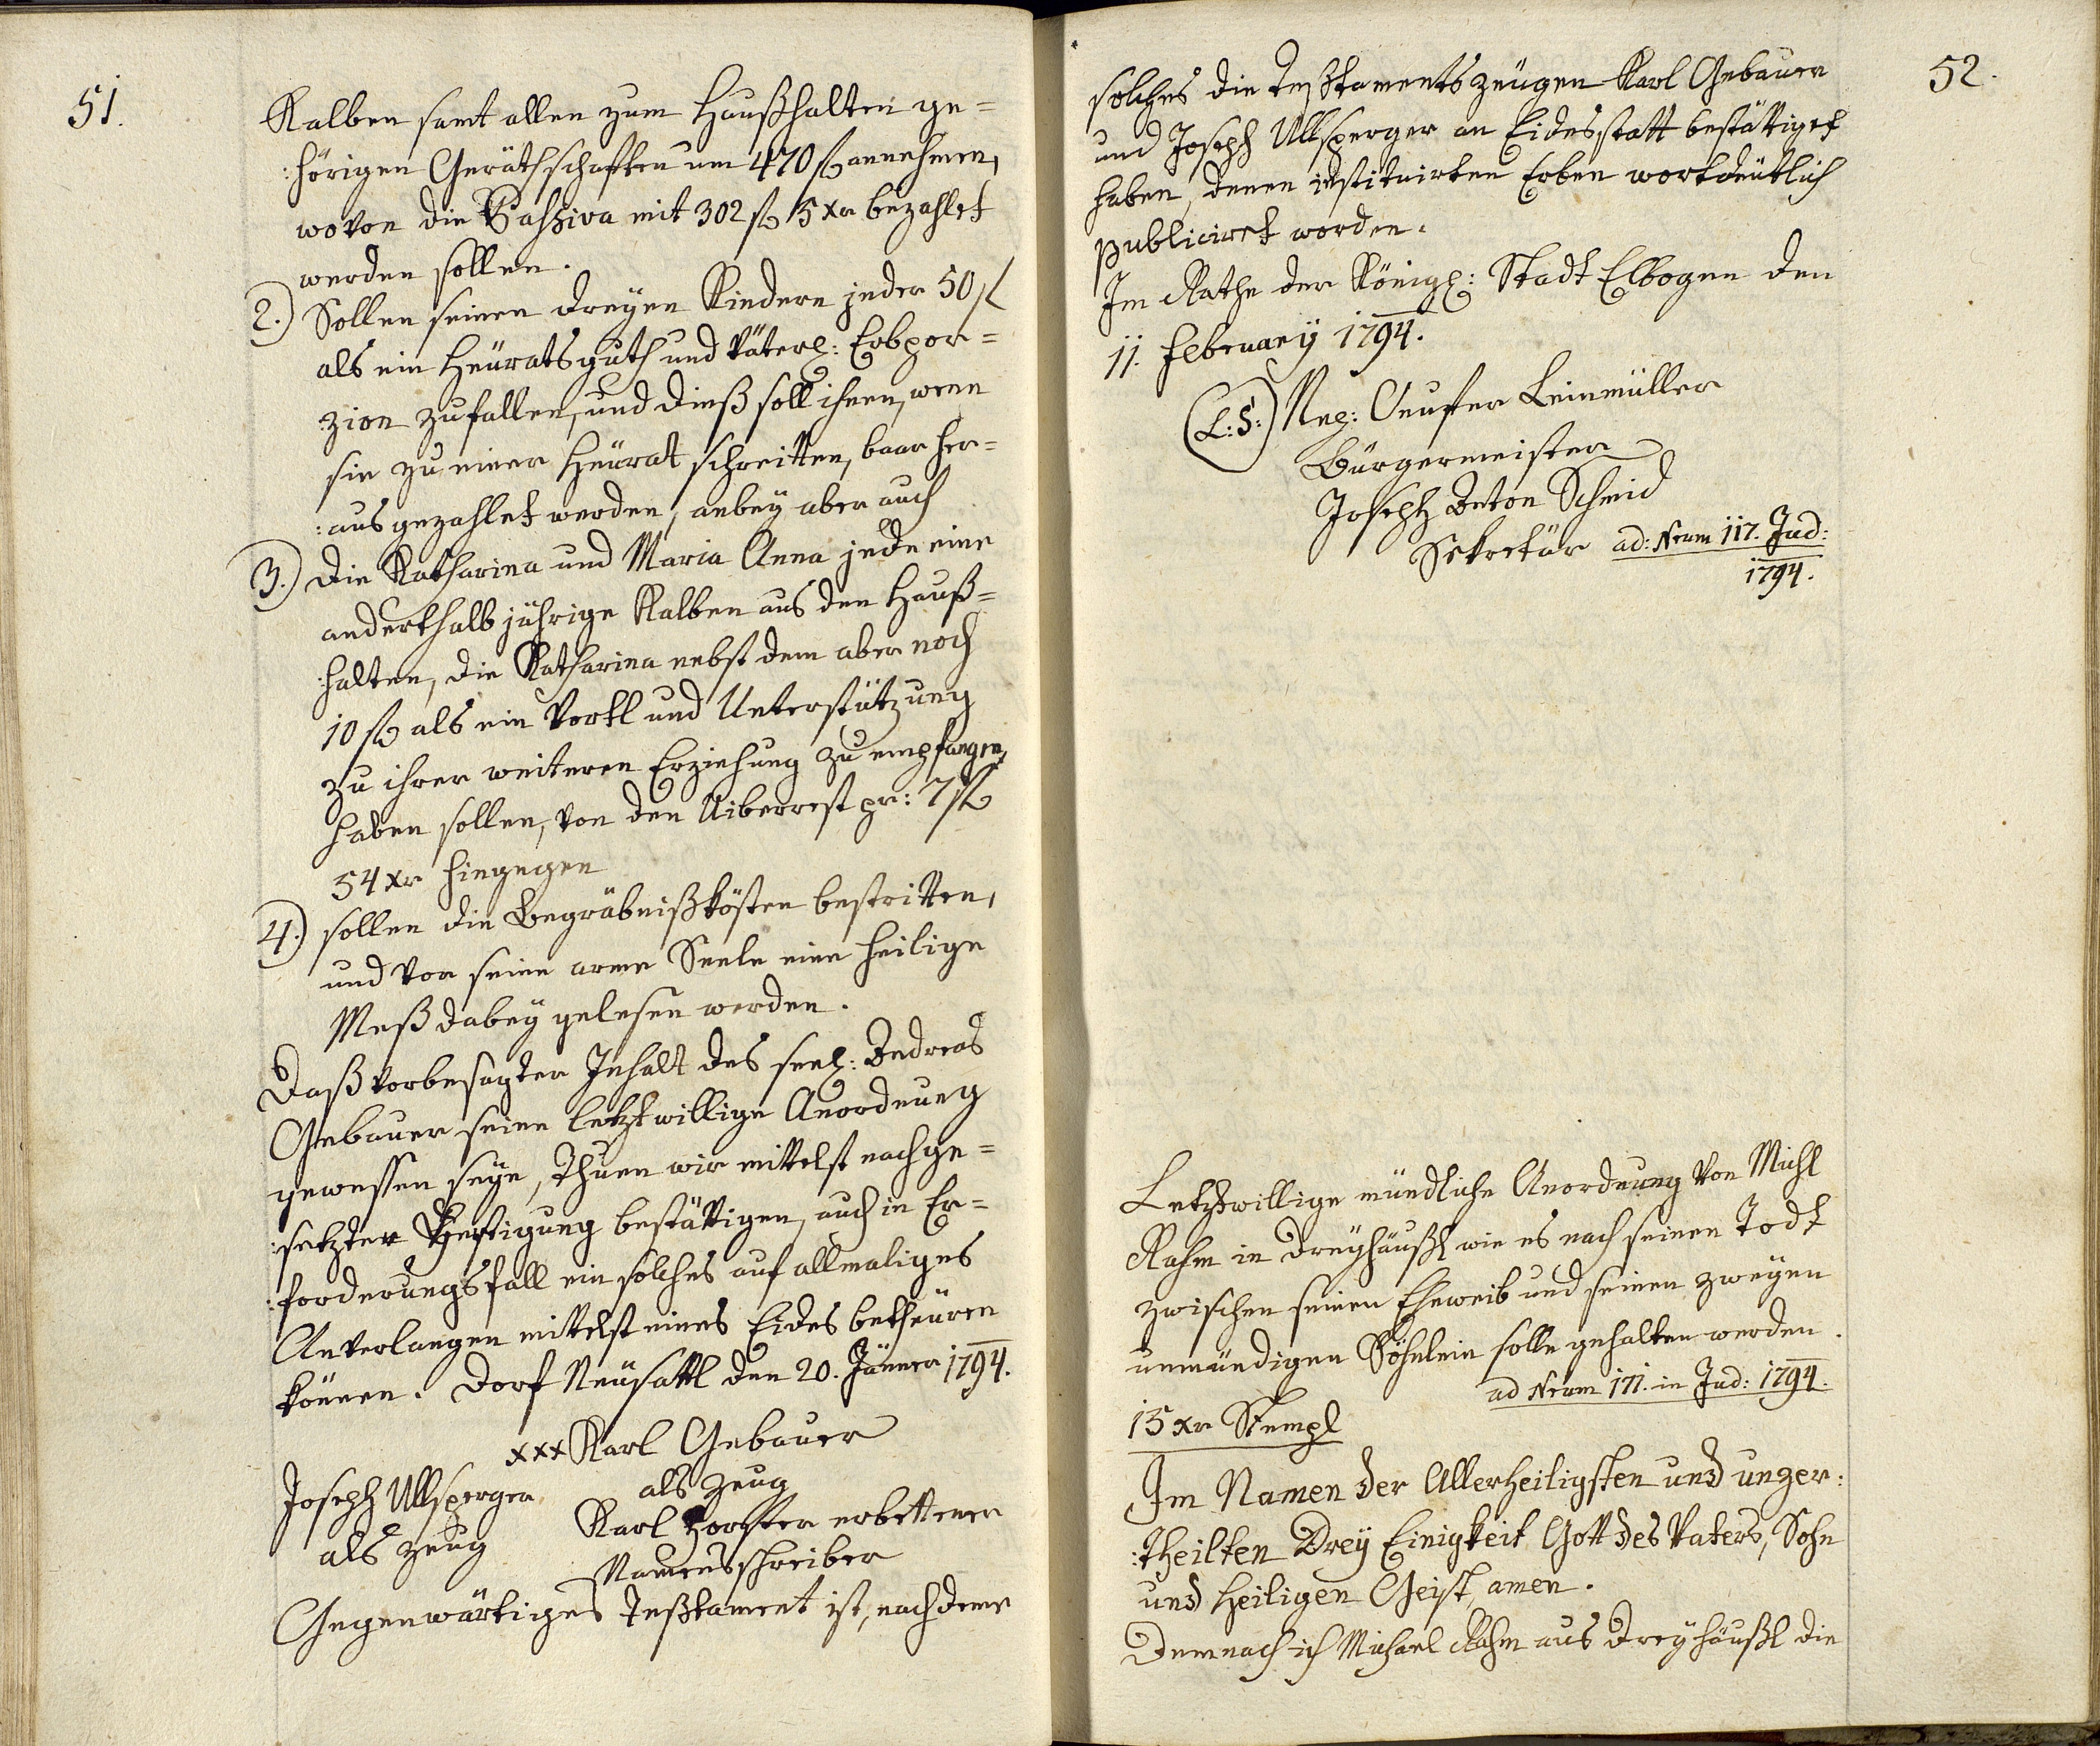 51.
Kalben samt allen zum Haußhalten ge=
:hörigen Geräthschaften um 470 fl annehmen,
wovon die Passiva mit 302 fl 5 xr bezahlet
werden sollen.
2.) Sollen seinen dreyen Kindern jeder 50 fl
als ein Heüratsguth und väterl: Erbpor=
:zion zufallen, und dieß soll ihnen, wenn
sie zu einer Heürat schreitten, baar her=
:ausgezahlet werden, anbey aber auch
3.) die Katharina und Maria Anna jede eine
anderthalb jährige Kalben aus den Hauß=
:halten, die Katharina nebst dem aber noch
10 fl als ein Vortl und Unterstützung
zu ihrer weiteren Erziehung zu empfangen,
haben sollen, von den Uiberrest pr: 7 fl
54 xr hingegen
4.) sollen die Begräbnißkösten bestritten,
und vor seine arme Seele eine heilige
Meß dabey gelesen werden.
Daß vorbesagter Inhalt des seel: Andreas
Gebauer seine letztwillige Anordnung
gewessen seye, thuen wir mittelst nachge=
:setzter Fertigung bestättigen, auch in Er=
:forderungsfall ein solches auf allmaliges
Anverlangen mittelst eines Eides betheüren
können. Dorf Neüsattl den 20. Jänner 1794.
xxx Karl Gebauer
als Zeug
Joseph Ullsperger
als Zeug
Karl Forster erbettener
Namensschreiber
Gegenwärtiges Testament ist, nachdeme
52.
solches die Testamentszeügen Karl Gebauer
und Joseph Ullsperger an Eidesstatt bestättiget
haben, denen instituirten Erben wortdeütlich
publiciret worden.
Im Rathe der Königl: Stadt Elbogen den
11. February 1794.
(L:S:) Leinmüller
Bürgermeister
Joseph Anton Schmid
Sekretär ad: Nrum 117. Jud:
1794.
Letztwillige mündliche Anordnung von Michl
Rahm in Dreyhäußl wie es nach seinen Todt
zwischen seinen Eheweib und seinen zweyen
unmündigen Söhnlein solle gehalten werden.
ad Nrum 171. in Jud: 1794.
15 xr Stempl
Im Namen der Allerheiligsten und unzer:
:theilten Drey Einigkeit Gott des Vaters, Sohn
und Heiligen Geist, amen.
Demnach ich Michael Rahm aus Dreyhäußl die